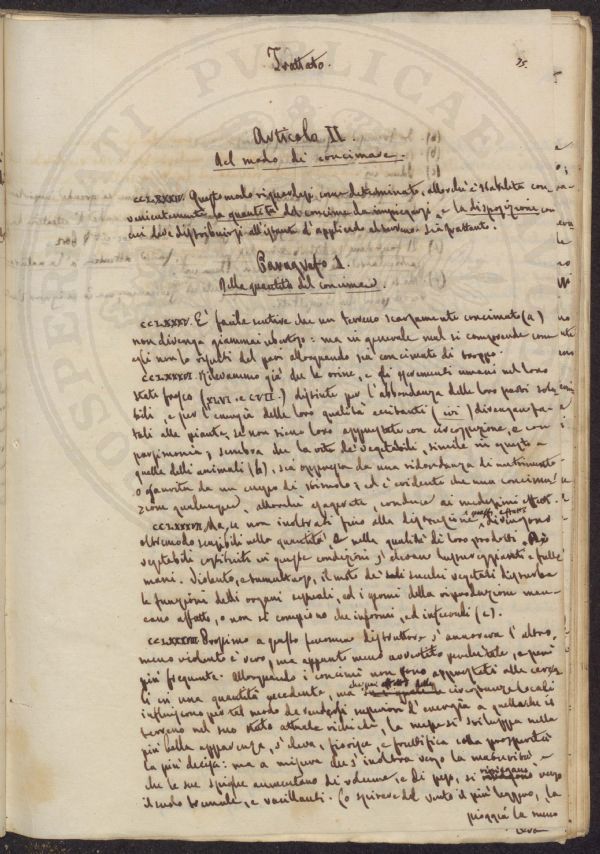 Trattato.
25.
Articolo II.
Del modo di concimare.
CCLXXXIV. Questo modo riguardasi come determinato, allorchè è stabilita con-
venientemente la quantità del concime da impiegarsi, e la disposizione con
cui deve distribuirsi all'istante d'applicarlo al terreno. Sei trattanto.
Paragrafo 1.
Della quantità del concime.
CCLXXXV. È facile sentire che un terreno scarsamente concimato (a)
non divenga giammai ubertoso: ma in generale mal si comprende come
egli non lo risulti del pari allorquando sia concimato di troppo.
CCLXXXVI. Rilevammo già che le orine, e gli escrementi umani nel loro
stato fresco (XLVI. e CVII.) distinte per l'abbondanza delle loro parti solu-
bili, e per l'energia delle loro qualità eccitanti (ivi) divengan fa-
tali alle piante, se non sieno loro apprestate con circospezione, e con
parsimonia; sembra che la vita de' vegetabili, simile in questo a
quella delli animali (b), sia oppressa da una ridondanza di nutrimento
o esaurita da un eccesso di stimolo; ed è evidente che una concima-
zione qualunque, allorchè esagerata, conduce ai medesimi effetti.
CCLXXXVII. Ma, se non inoltrati fino alla distruzione questi effetti divengono
oltremodo sensibili nella quantità e nella qualità di loro prodotti. Dei
vegetabili costituiti in queste condizioni s'elevano lussureggianti e
mani. Violento, e tumultuoso, il moto de' sali succhi vegetali disturba
le funzioni delli organi sessuali, ed i germi della riproduzione man-
cano affatto, o non si compiono che informi, ed infecondi (c).
CCLXXXVIII. Prossimo a questo fenomeno distruttore s'annovera l'altro,
meno violento è vero, ma appunto meno avvertito perchè tale, e però
più frequente. Allorquando i concimi non sono apprestati alle cerea-
li in una quantità eccedente, ma circostanze locali
influiscono per tal modo da renderli superiori d'energia a quella che il
terreno nel suo stato attuale richiede, la messe si sviluppa nella
più bella apparenza, s'eleva, fiorisce, e fruttifica colla prosperità
la più decisa: ma a misura che s'inoltra verso la maturità, e
che le sue spighe aumentano di volume, e di peso, si ripiegano verso
il suolo tremule, e vacillanti. Lo spirare del vento il più leggero, la
pioggia la meno